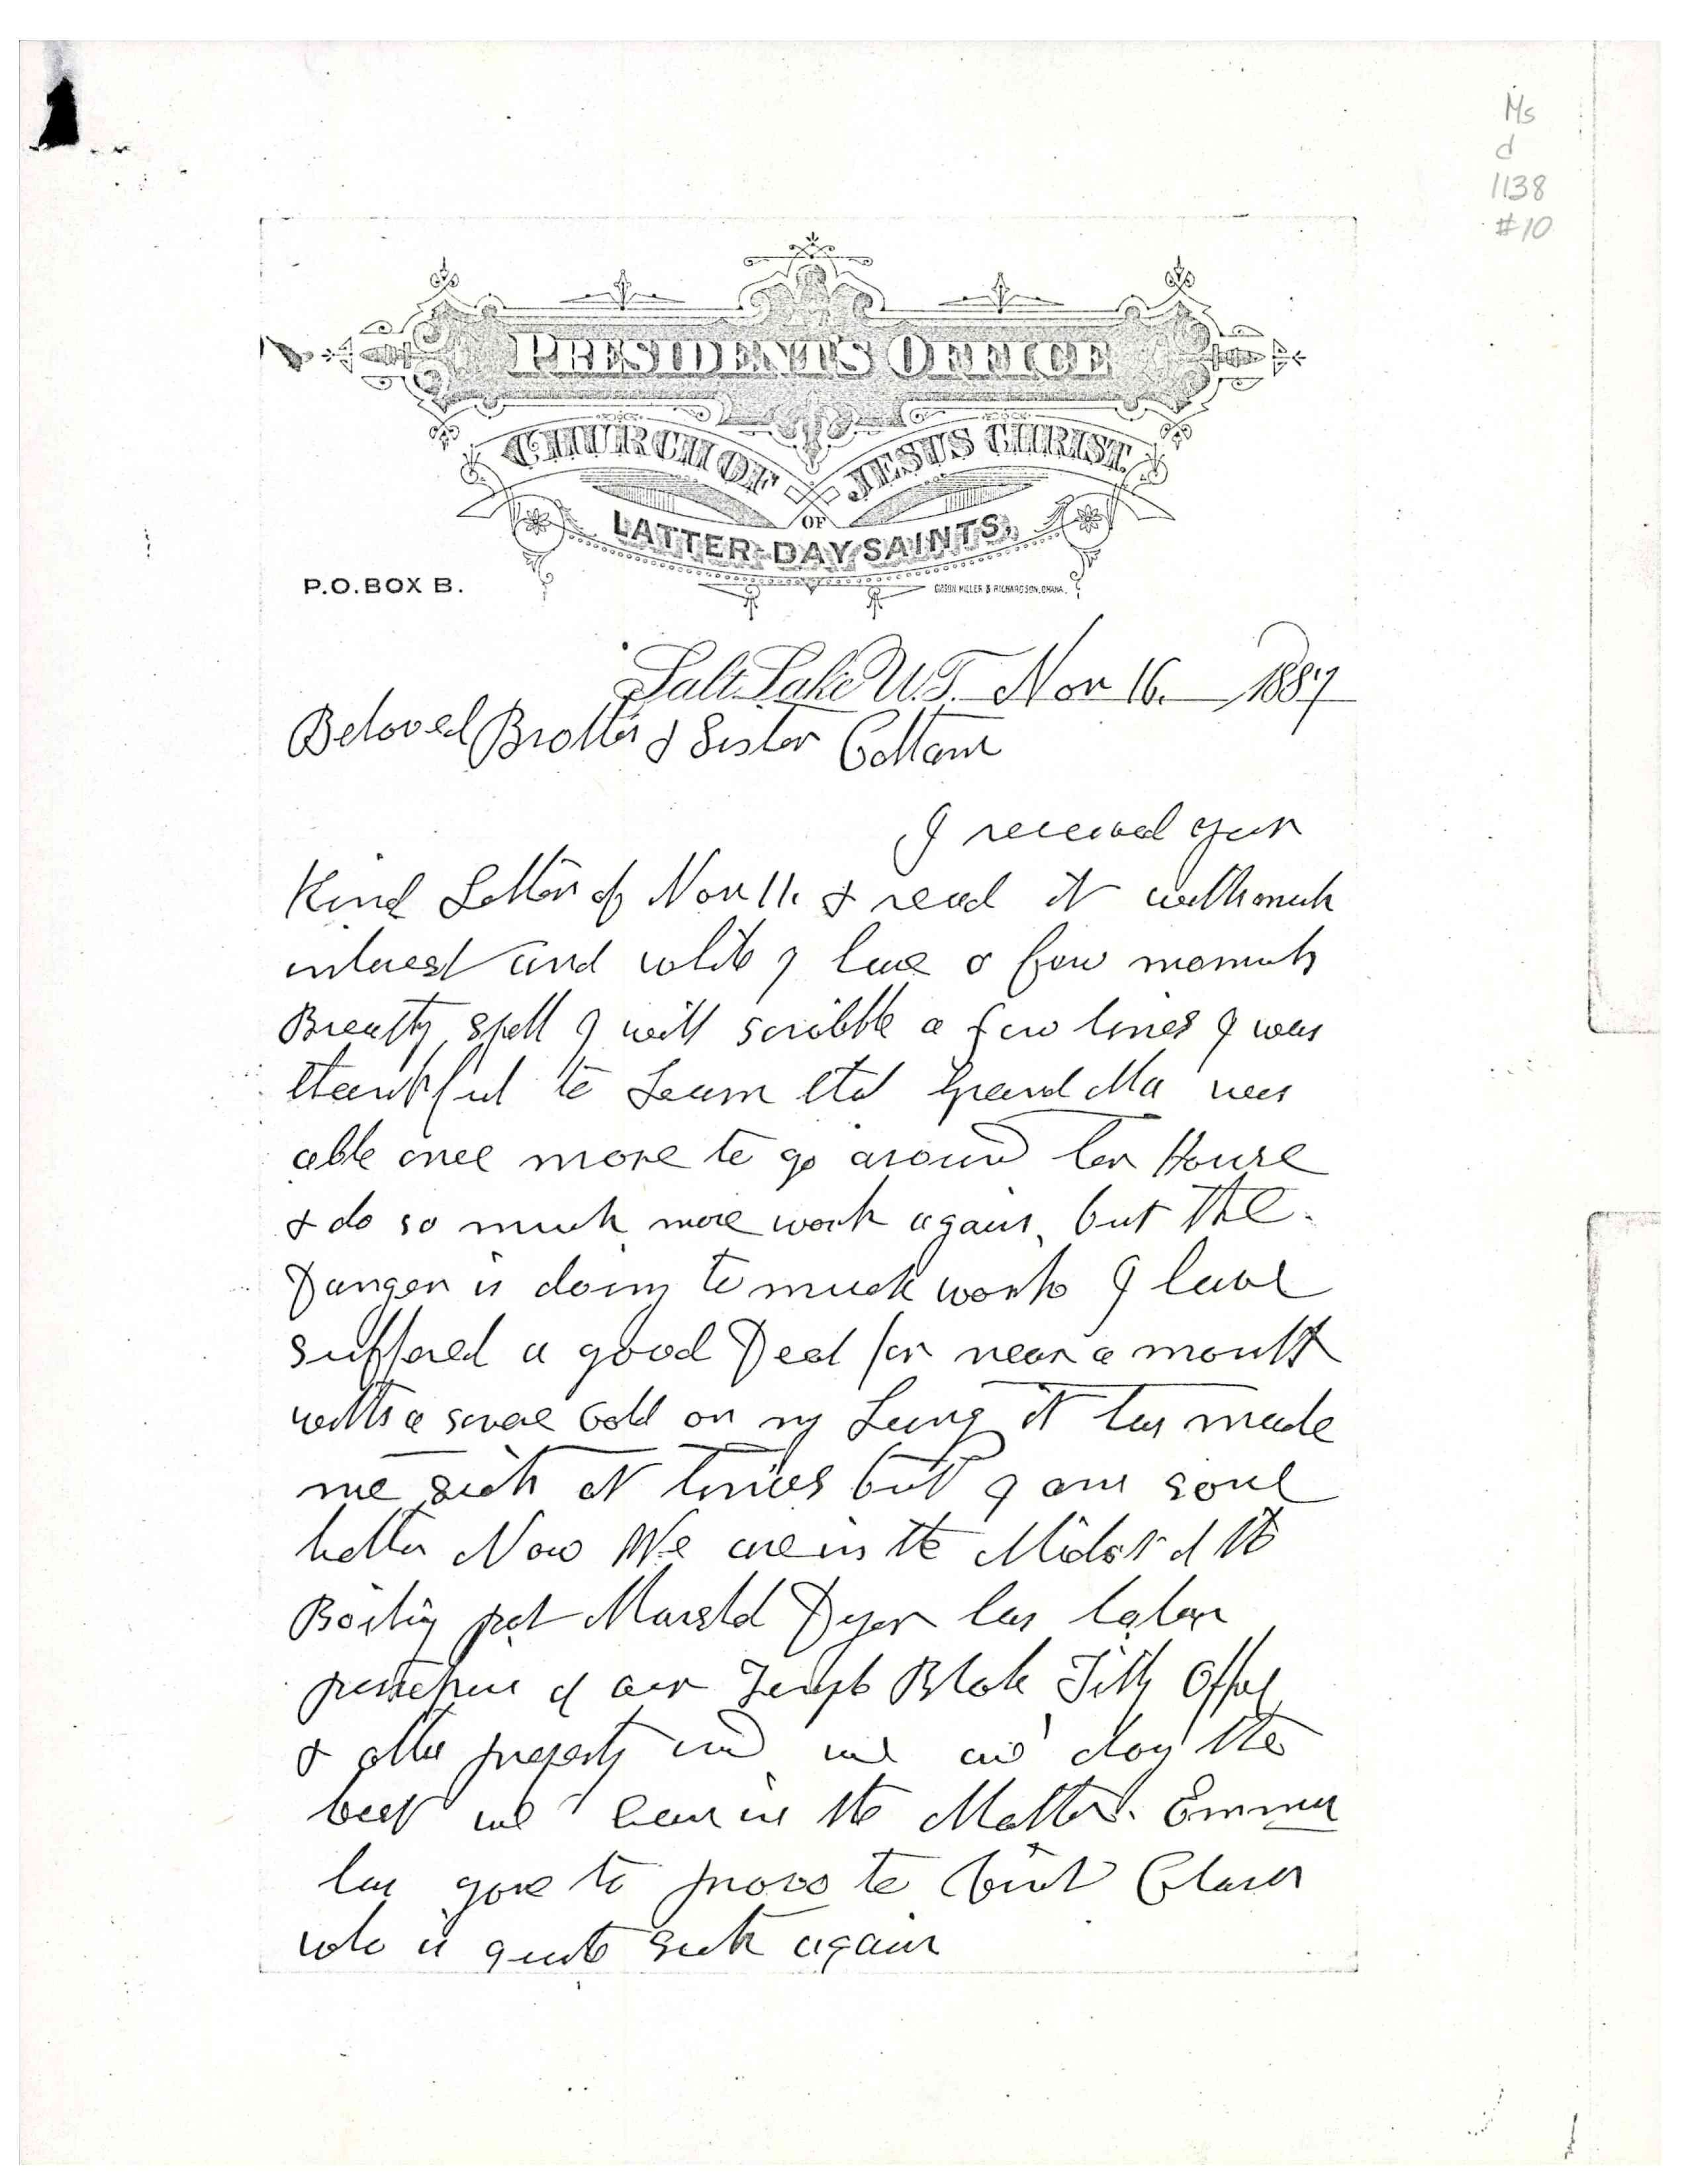 Ms
d
1138
#10
PRESIDENT'S OFFICE
CHURCH OF JESUS CHRIST
OF
LATTER-DAY SAINTS,
P.O. BOX B.
Salt Lake U.T. Nov 16. 1887
Beloved Brother & Sister Cottam
I received your
Kind Letter of Nov 11. & read it with much
interest and while I have a few moments
Breathg spell I will scribble a few lines I was
thankful to Learn that Grand Ma was
able once more to go around her House
& do so much more work again, but the
Danger is doing to much work I have
suffered a good Deal for near a month
with a severe Cold on my Lung it has made
me sick at times but I am some
better Now We are in the Midst of the
Boiling pot Marshal Dyer has taken
possession of our Temple Block Tithg Office
& other property and we are doing the
best we can in the Matter. Emma
has gone to provo to visit Clara
who is quite sick again